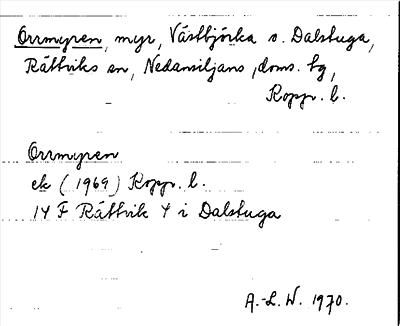 Orrmyren, myr, Västbjörka s. Dalstuga,
Rättviks sn, Nedansiljans doms. tg,
Kopp. l.
Orrmyren
ek (1969) Kopp. l.
14 F Rättvik 4 i Dalstuga
A.-L. W. 1970.